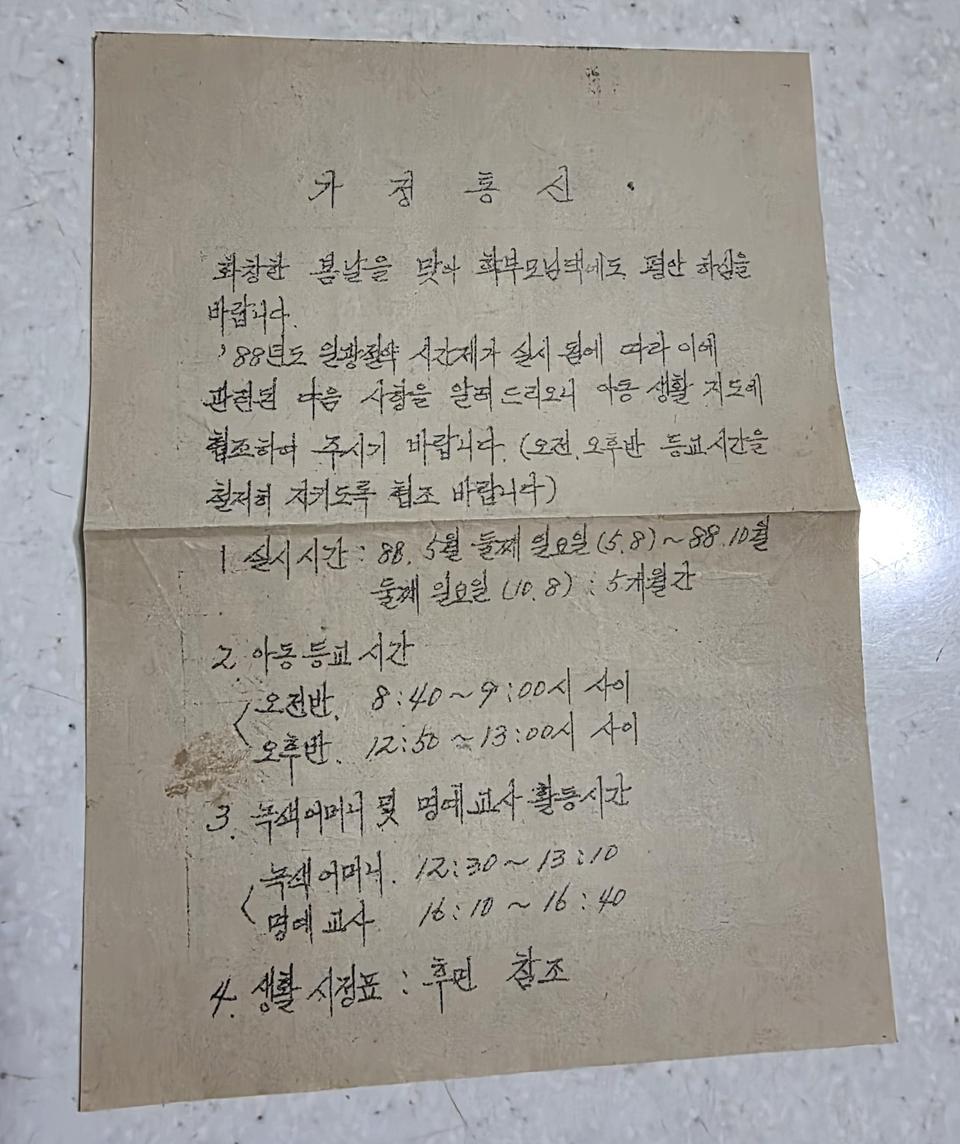 가 정 통 신
화창한 봄날을 맞아 학부모님댁에도 평안 하심을
바랍니다.
'88년도 일광절약 시간제가 실시 됨에 따라 이에
관련된 다음 사항을 알려 드리오니 아동 생활 지도에
협조하여 주시기 바랍니다. (오전, 오후반 등교시간을
철저히 지키도록 협조 바랍니다)
1. 실시시간 : 88. 5월 둘째 일요일 (5.8) ~ 88.10월
둘째 일요일 (10.8) : 5개월간
2. 아동 등교 시간
오전반. 8:40 ~ 9:00시 사이
오후반. 12:50 ~ 13:00시 사이
3. 녹색어머니 및 명예교사 활동시간
녹색어머니. 12:30 ~ 13:10
명예교사 16:10 ~ 16:40
4. 생활 시정표 : 후면 참조